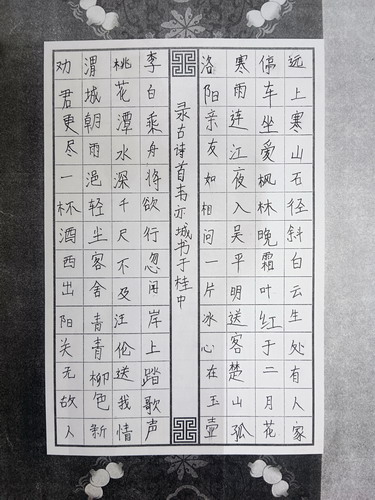 远上寒山石径斜白云生处有人家
停车坐爱枫林晚霜叶红于二月花
寒雨连江夜入吴平明送客楚山孤
洛阳亲友如相问一片冰心在玉壶
录古诗首韦亦城书于桂中
李白乘舟将欲行忽闻岸上踏歌声
桃花潭水深千尺不及汪伦送我情
渭城朝雨浥轻尘客舍青青柳色新
劝君更尽一杯酒西出阳关无故人